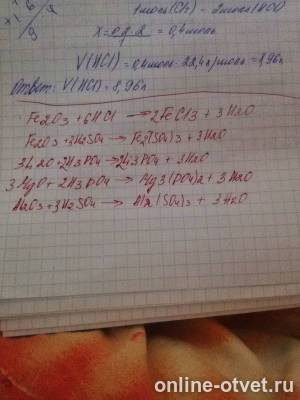 1 моль (Cl2) - 2 моль (HCl)
x = 0,2·2 / 1 = 0,4 моль
V(HCl) = 0,4 моль · 22,4 л/моль = 8,96 л
Ответ: V(HCl) = 8,96 л
Fe2O3 + 6HCl → 2FeCl3 + 3H2O
Fe2O3 + 3H2SO4 → Fe2(SO4)3 + 3H2O
3Li2O + 2H3PO4 → 2Li3PO4 + 3H2O
3MgO + 2H3PO4 → Mg3(PO4)2 + 3H2O
Al2O3 + 3H2SO4 → Al2(SO4)3 + 3H2O
online-otvet.ru